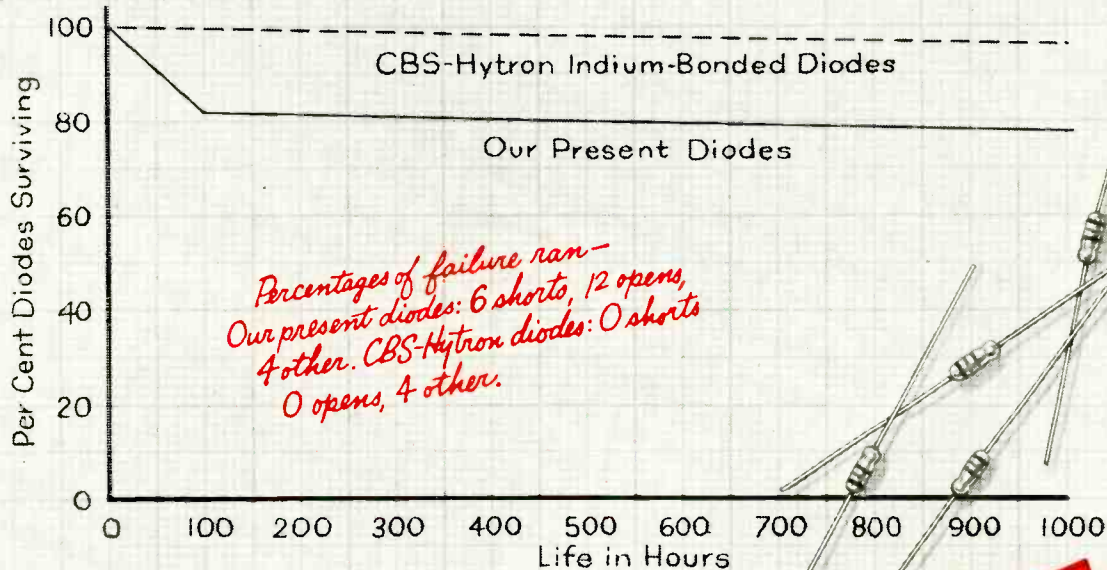 Per Cent Diodes Surviving
100
80
60
40
20
0
CBS-Hytron Indium-Bonded Diodes
Our Present Diodes
Percentages of failure ran—
Our present diodes: 6 shorts, 12 opens,
4 other. CBS-Hytron diodes: 0 shorts
0 opens, 4 other.
0 100 200 300 400 500 600 700 800 900 1000
Life in Hours